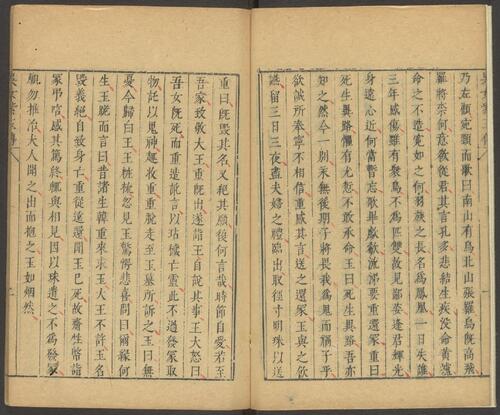 乃左顧宛頸而歌曰南山有烏北山張羅烏既高飛
羅將奈何意欲從君其言孔多悲結生疾沒命黃壚
命之不造冤如之何羽族之長名為鳳凰一日失雄
三年感傷雖有眾鳥不為匹雙故見鄙姿逢君輝光
身遠心近何當暫忘歌畢歔欷流涕要重還冢重曰
死生異路懼有尤愆不敢承命玉曰死生異路吾亦
知之然今一別永無後期子將畏我為鬼而禍子乎
欲誠所奉寧不相信重感其言送之還冢玉與之飲
讌留三日三夜盡夫婦之禮臨出取徑寸明珠以送
重曰既毀其名又絕其願復何言哉時節自愛若至
吾家致敬大王重既出遂詣王自說其事王大怒曰
吾女既死而重造訛言以玷穢亡靈此不過發冢取
物託以鬼神趣收重重脫走至玉墓所訴之玉曰無
憂今歸白王王粧梳忽見玉驚愕悲喜問曰爾緣何
生玉跪而言曰昔諸生韓重來求玉大王不許玉名
毀義絕自致身亡重從遠還聞玉已死故齎牲幣詣
冢弔唁感其篤終輒與相見因以珠遺之不為發冢
願勿推治夫人聞之出而抱之玉如烟然